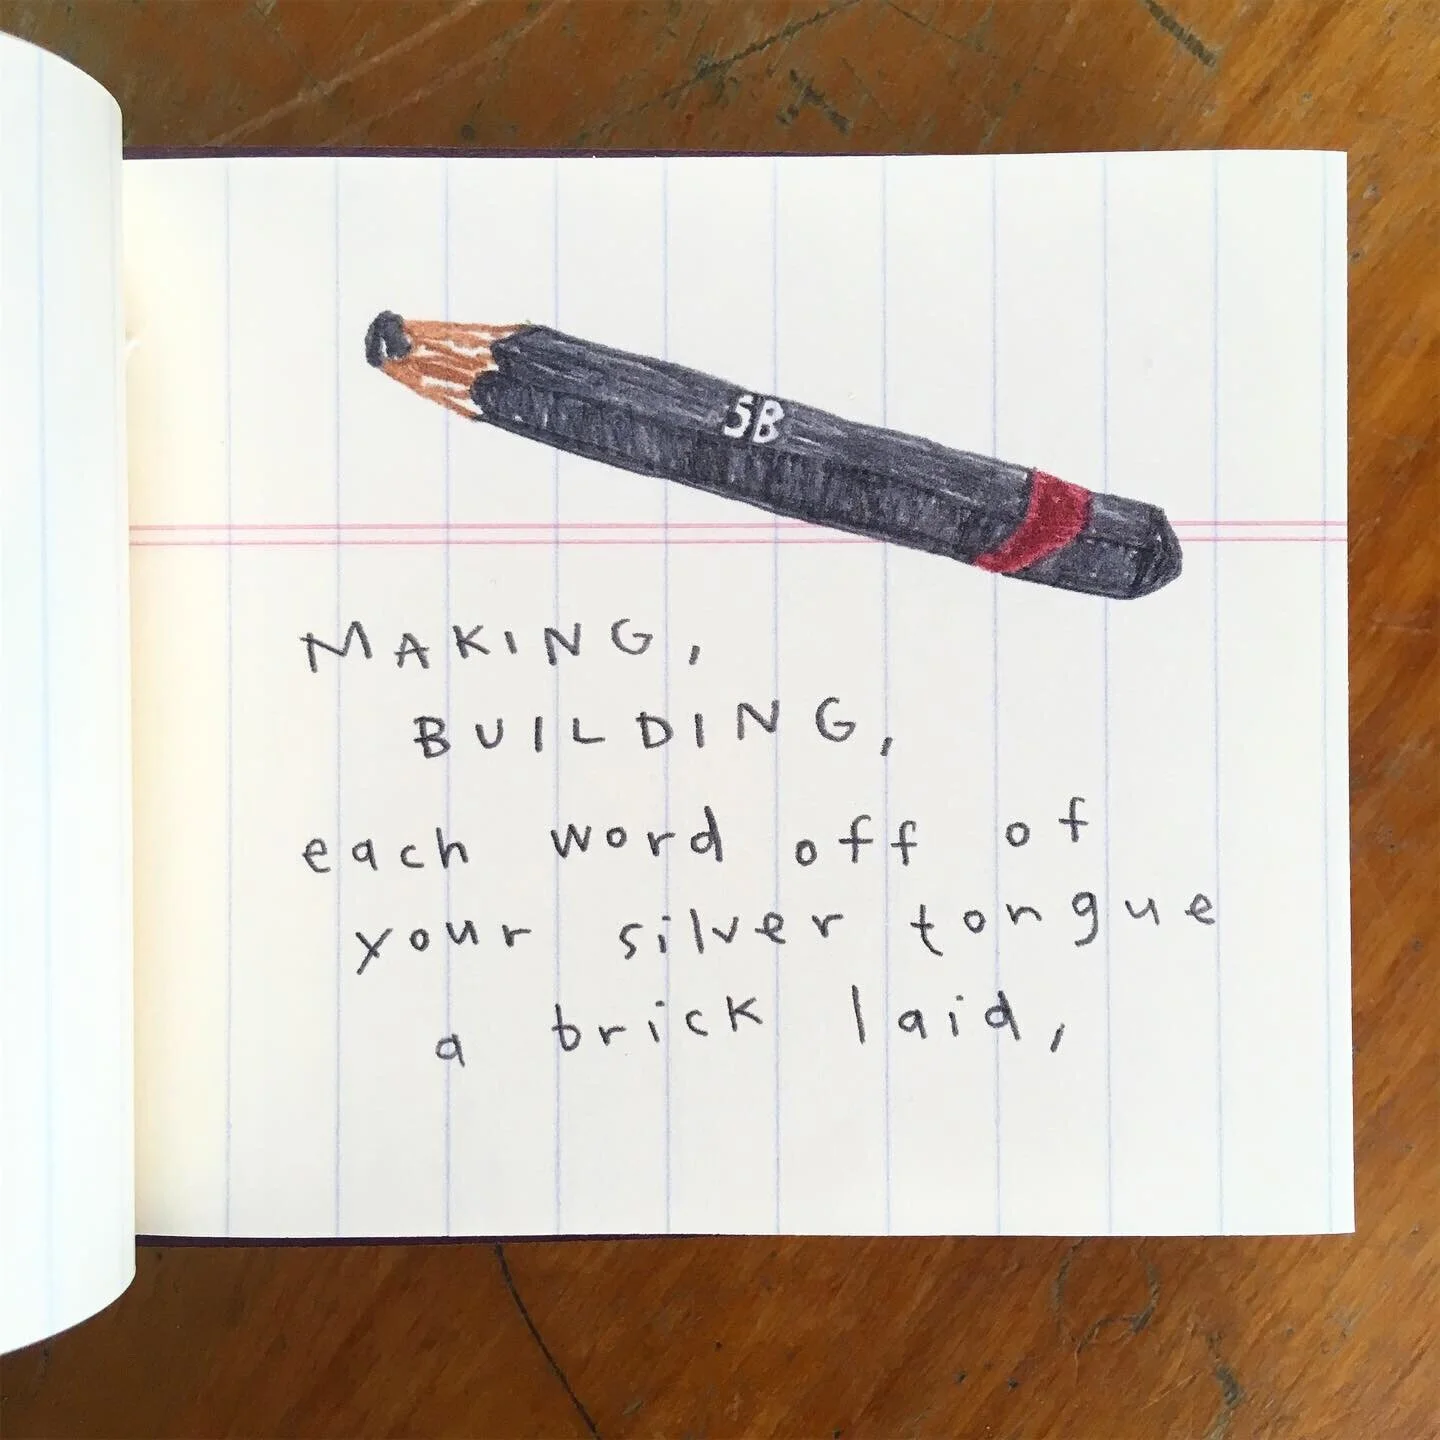 5B
MAKING,
BUILDING,
each word off of
your silver tongue
a brick laid,